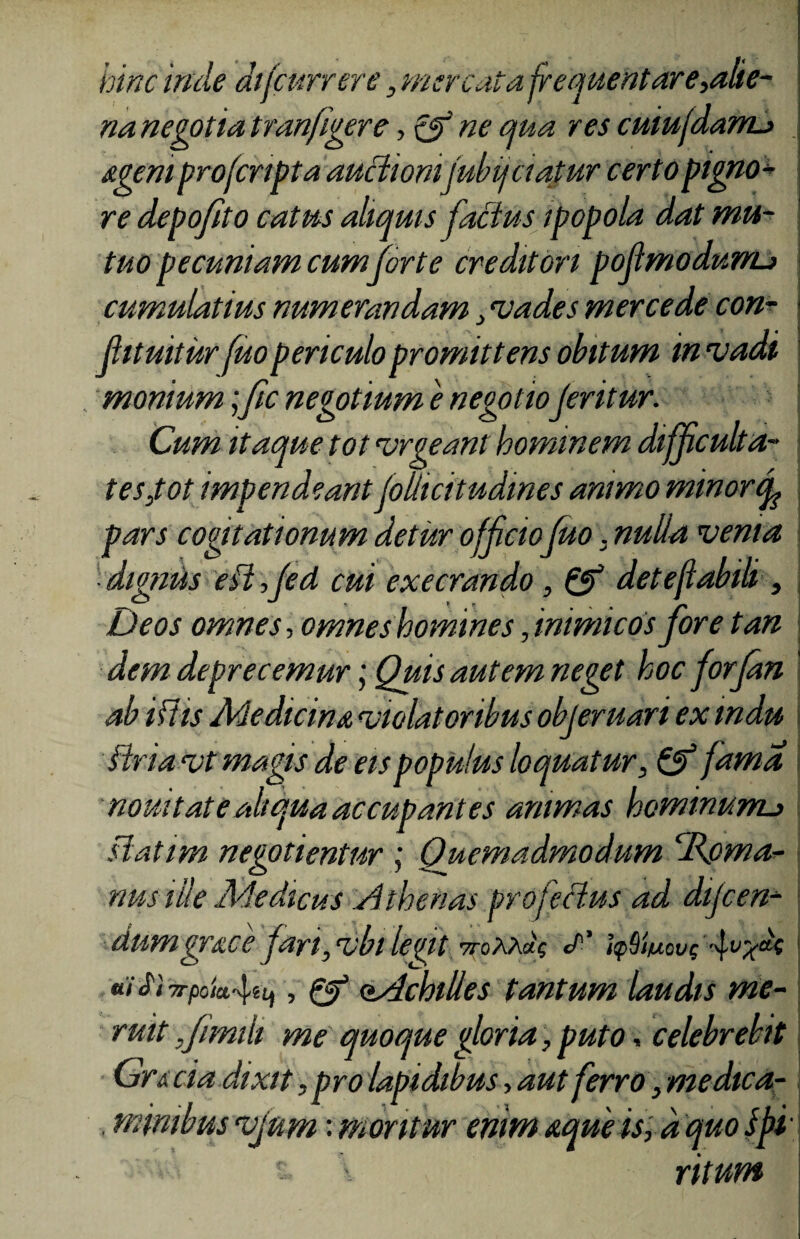 hinc inde diſcurrere, mercata frequentare, alie-
na negotia tranſigere, & ne qua res cuiuſdam
ægeni proſcripta auctioni ſubijciatur certo pigno-
re depoſito catus aliquis factus ipopola dat mu-
tuo pecuniam cum ſorte creditori poſtmodum
cumulatius numerandam, vades mercede con-
ſtituitur ſuo periculo promittens obitum in vadi
monium; ſic negotium è negotio ſeritur.
Cum itaque tot vrgeant hominem difficulta-
tes, tot impendeant ſollicitudines animo minorq;
pars cogitationum detur officio ſuo, nulla venia
dignus eſt, ſed cui execrando, & deteſtabili,
Deos omnes, omnes homines, inimicos fore tan
dem deprecemur; Quis autem neget hoc forſan
ab iſtis Medicinæ violatoribus obſeruari ex indu
ſtria vt magis de eis populus loquatur, & famâ
nouitate aliqua accupantes animas hominum
ſtatim negotientur; Quemadmodum Roma-
nus ille Medicus Athenas profectus ad diſcen-
dum græcè fari, vbi legit πολλὰς δ' ἰφθίμους ψυχὰς
αἴδι προίαψεν, & Achilles tantum laudis me-
ruit, ſimili me quoque gloria, puto, celebrebit
Græcia dixit, pro lapidibus, aut ferro, medica-
minibus vſum: moritur enim æque is, à quo ſpi
ritum